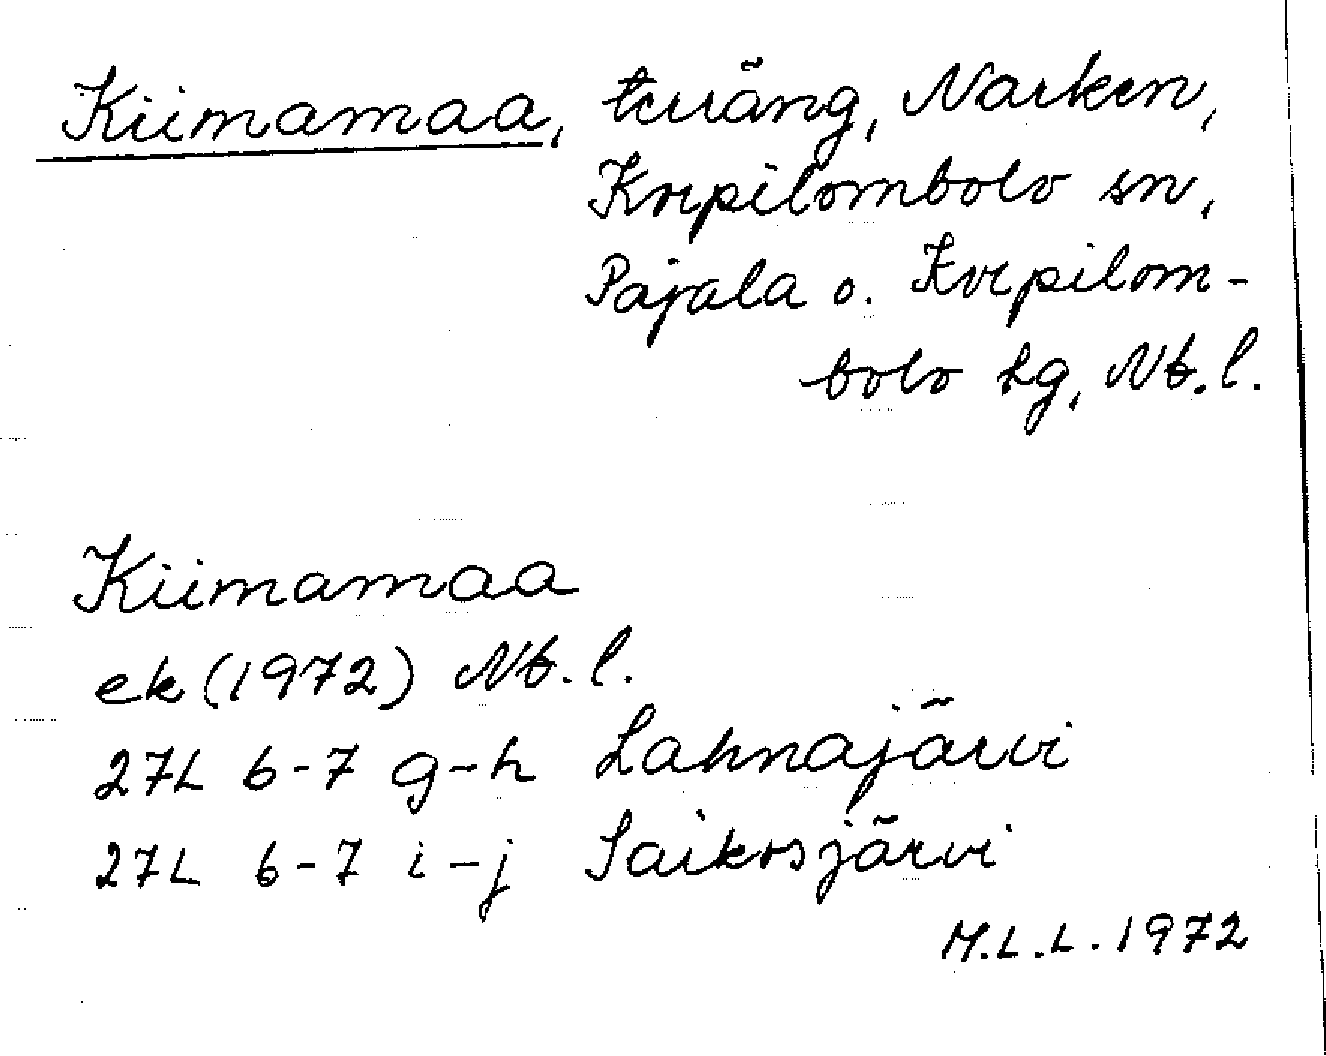 Kiimamaa, terräng, Narken,
Korpilombolo sn,
Pajala o. Korpilom-
bolo tg, Nb.l.
Kiimamaa
ek (1972) Nb.l.
27L 6-7 g-h Lahnajärvi
27L 6-7 i-j Saikosjärvi
M.L.L. 1972